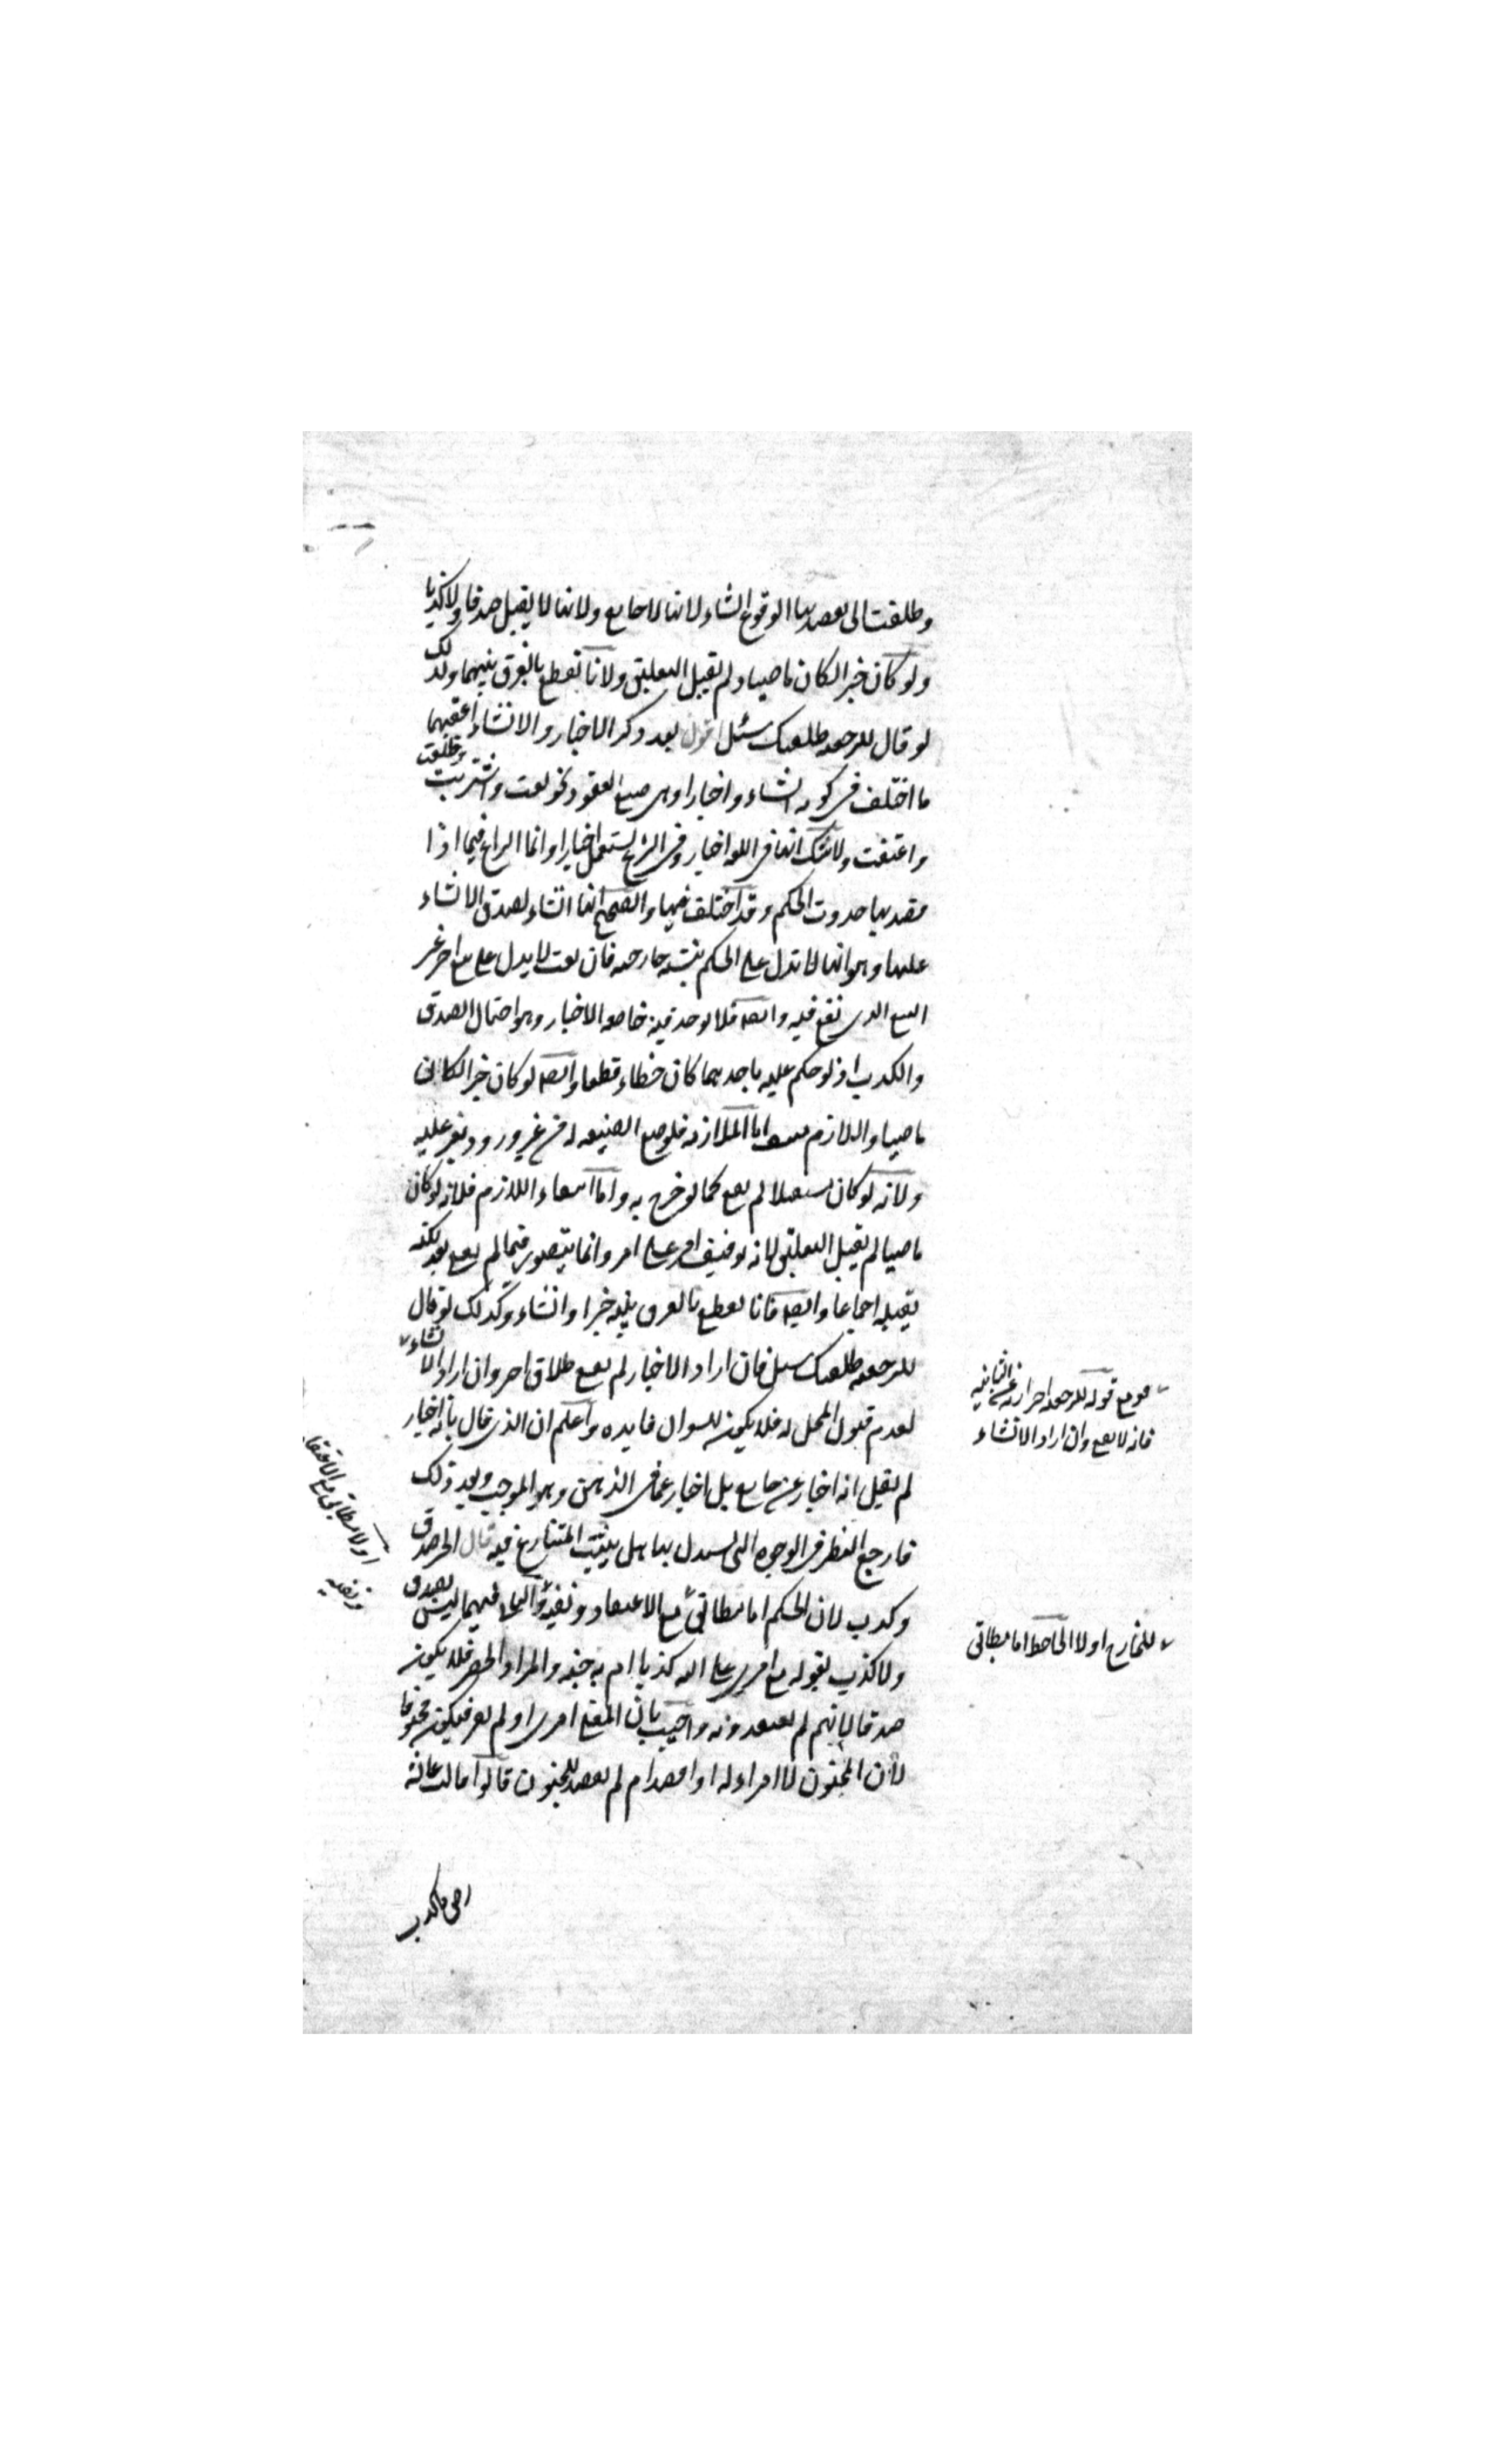 وطلقت التي يقصد بها الوقوع انشاء لانها لا خارج لها ولانها لا يقبل صدقا ولا كذبا
ولو كان خبرا لكان ماضيا ولم يقبل التعليق ولانا نقطع بالفرق بينهما ولذلك
لو قال للرجعية طلقتك سئل اقول بعد ذكر الاخبار والانشاء اعقبهما
ما اختلف في كونه انشاء واخبارا وهي صيغ العقود نحو بعت واشتريت وطلقت
واعتقت ولا شك انها في اللغة اخبار وفي الشرع يستعمل اخبارا وانما النزاع فيما اذا
قصد بها حدوث الحكم وقد اختلف فيها والصحيح انها انشاء لصدق الانشاء
عليها وهو انها لا تدل على الحكم بنسبة خارجية فان بعت لا يدل على بيع اخر غير
البيع الذي يقع فيه وايضا فلا يوجد فيه خاصة الاخبار وهو احتمال الصدق
والكذب اذ لو حكم عليه باحدهما كان خطاء قطعا وايضا لو كان خبرا لكان
ماضيا واللازم اما الملازمة فلوضع الصيغة له من غير ورود مغير عليه
ولانه لو كان مستقبلا لم يقع كما لو صرح به واما انتفاء اللازم فلانه لو كان
ماضيا لم يقبل التعليق لانه توقيف امر على امر وانما يتصور فيما لم يقع بعد لكنه
يقبله اجماعا وايضا فانا نقطع بالفرق بينه خبرا وانشاء وكذلك لو قال
للرجعية طلقتك سئل فان اراد الاخبار لم يقع طلاق اخر وان اراد الانشاء
لعدم قبول المحل له فلا يكون للسؤال فايدة واعلم ان الذي قال بانه اخبار
لم يقل انه اخبار عن خارج بل اخبار عما في الذهن وهو الموجب وبعد ذلك
فارجع النظر في الوجوه التي استدل بها هل يثبت المتنازع فيه قال الخبر صدق
وكذب لان الحكم اما مطابق مع الاعتقاد ونفيه والثاني فيهما ليس بصدق
ولا كذب لقوله تع افترى على الله كذبا ام به جنة والمراد الحصر فلا يكون
صدقا لانهم لم يعتقدونه واجيب بان المعنى افترى او لم يفتر فيكون مجنونا
لان المجنون لا افتراء له او اقصد ام لم يقصد للجنون قالوا قالت عائشة
وقع قوله للرجعية احترازه عن البائنة
فانه لا يقع وان اراد الانشاء
للخارج اولا الجاحظ اما مطابق
اولا مطابق مع الاعتقاد
ونفيه